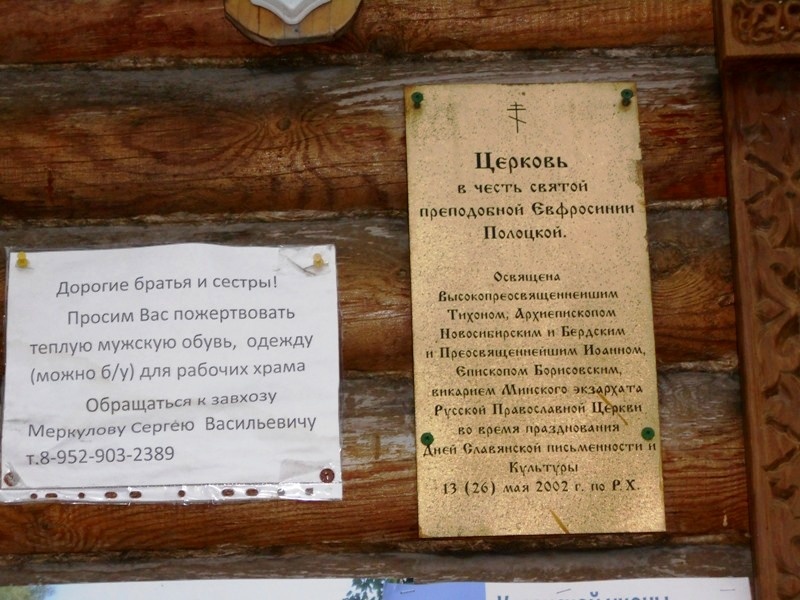 Дорогие братья и сестры!
Просим Вас пожертвовать
теплую мужскую обувь, одежду
(можно б/у) для рабочих храма
Обращаться к завхозу
Меркулову Сергею Васильевичу
т.8-952-903-2389
Церковь
в честь святой
преподобной Евфросинии
Полоцкой.
Освящена
Высокопреосвященнейшим
Тихоном, Архиепископом
Новосибирским и Бердским
и Преосвященнейшим Иоанном,
Епископом Борисовским,
викарием Минского экзархата
Русской Православной Церкви
во время празднования
Дней Славянской письменности и
Культуры
13 (26) мая 2002 г. по Р.Х.